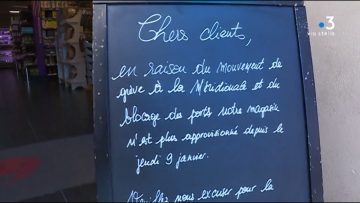 3
via stella
Chers clients,
en raison du mouvement de
grève à la Méridionale et du
blocage des ports notre magasin
n'est plus approvisionné depuis le
jeudi 9 janvier.
Veuillez nous excuser pour la